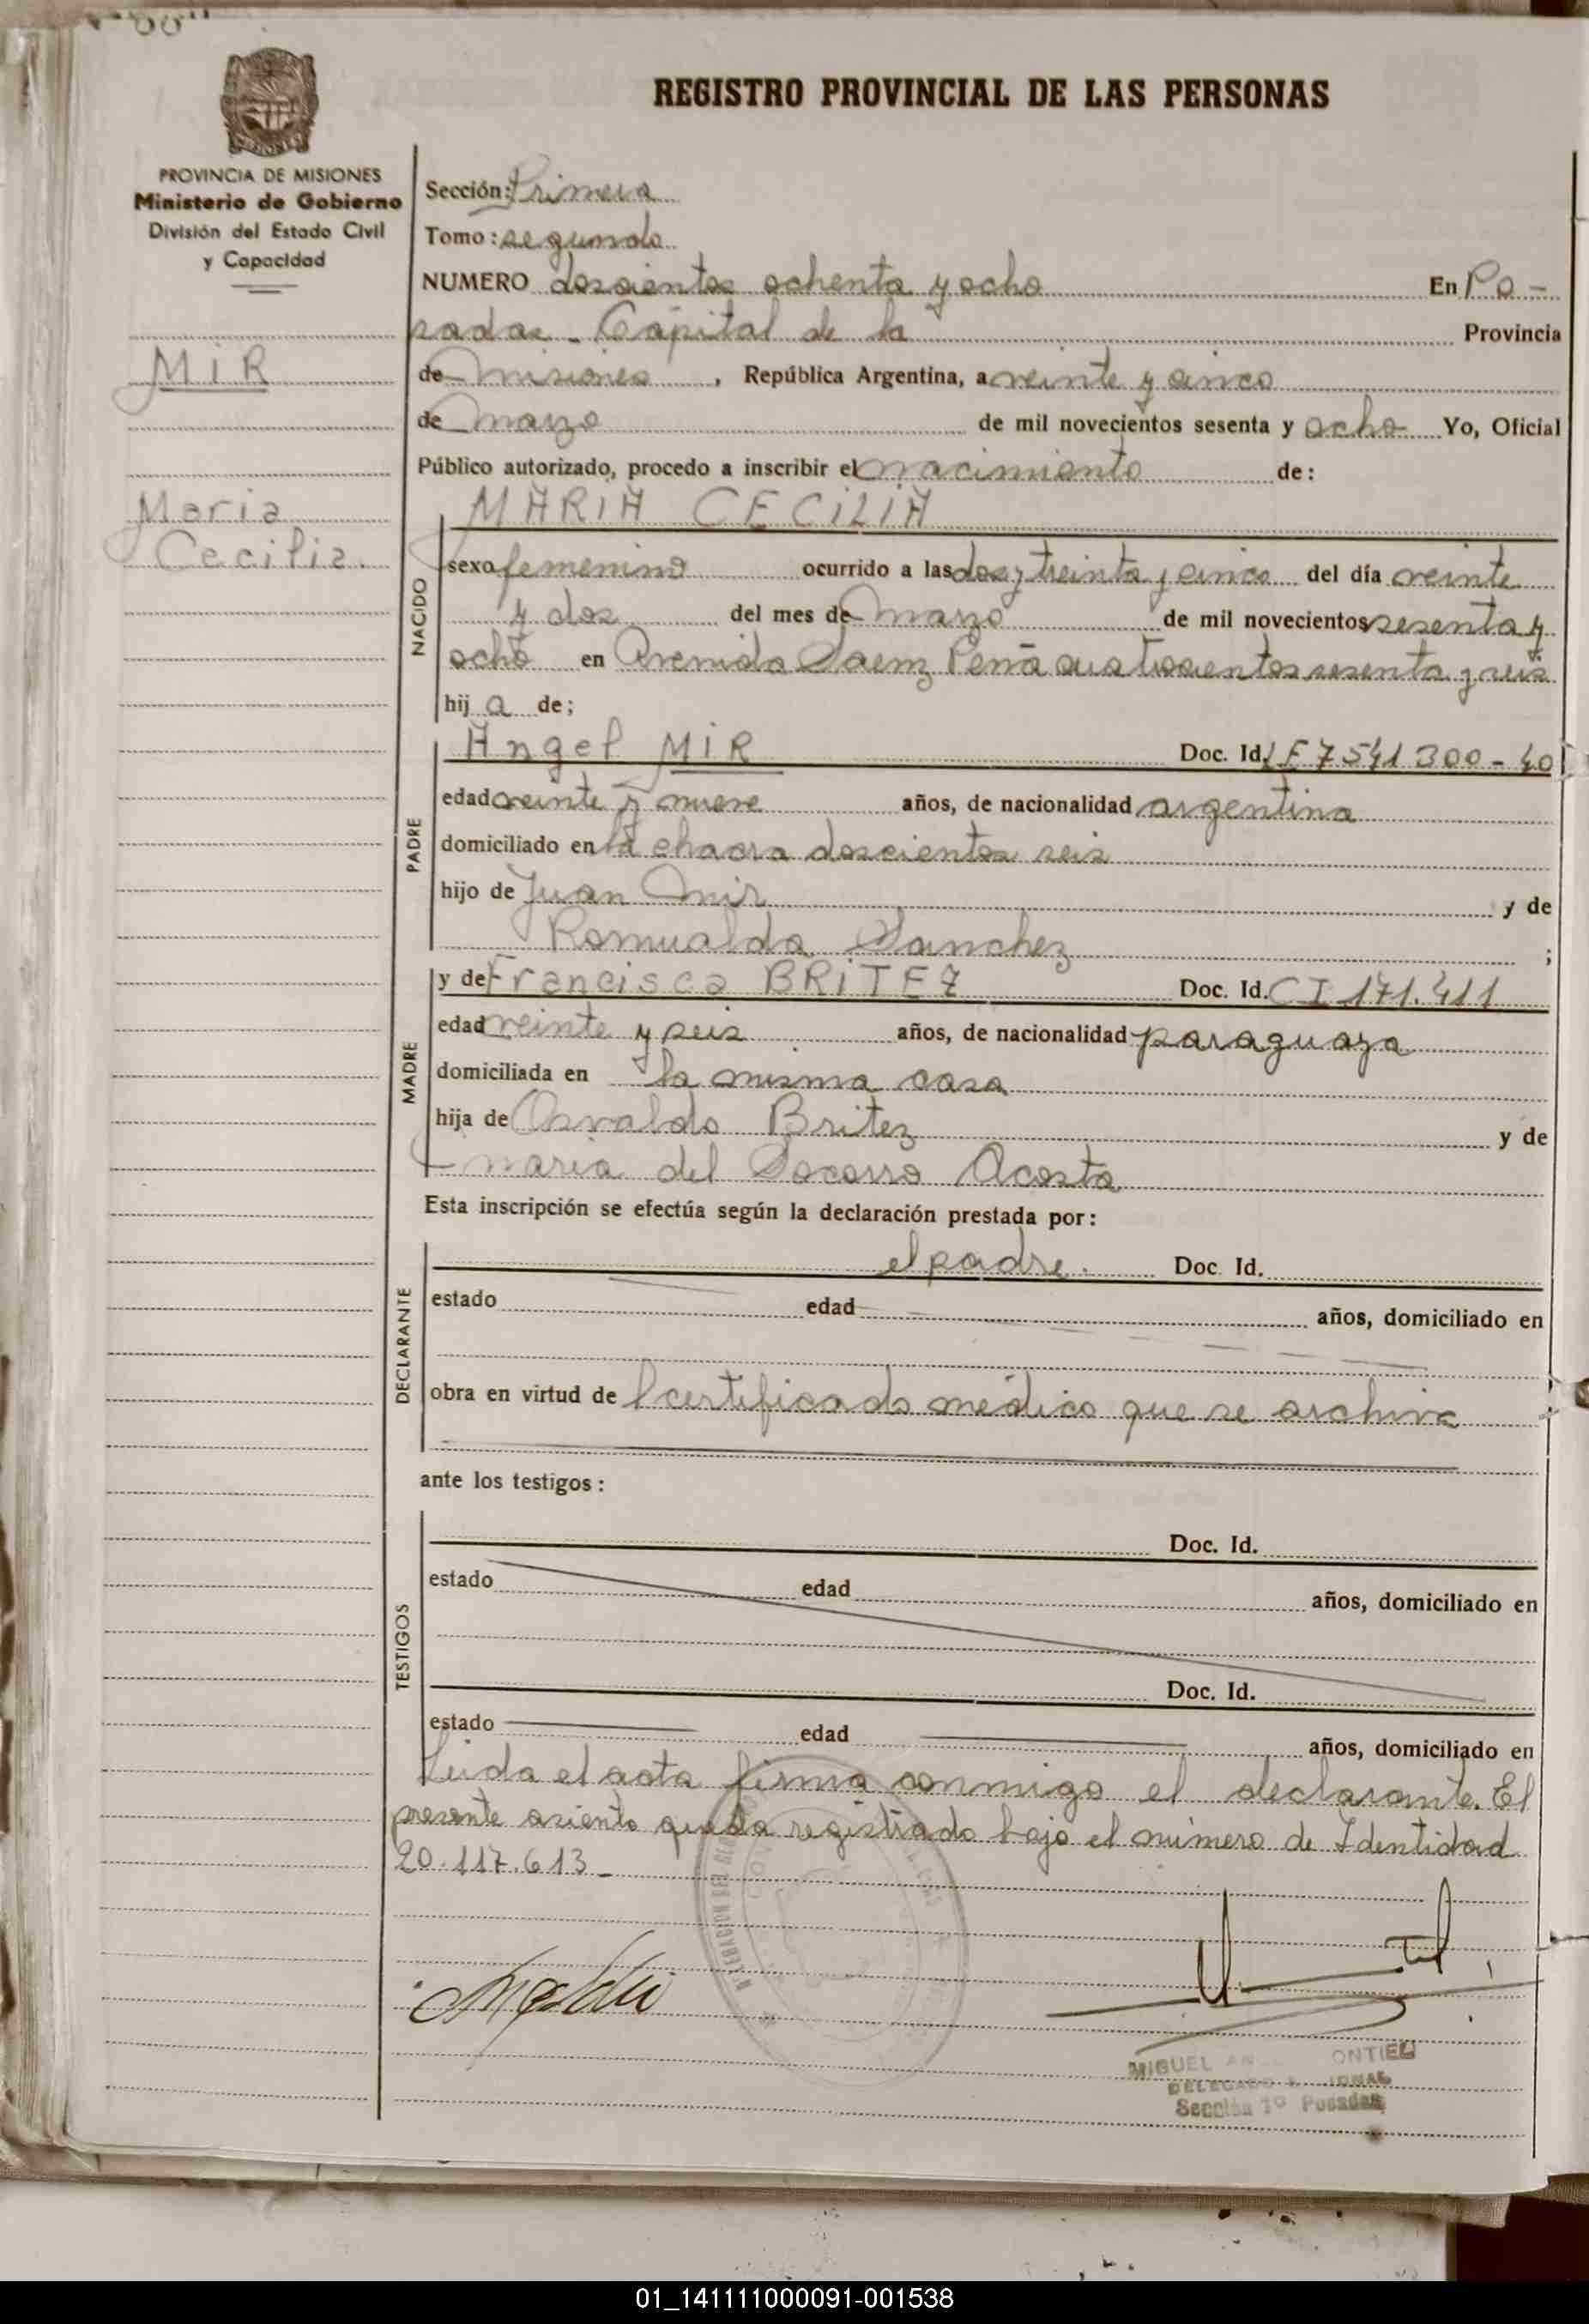 REGISTRO PROVINCIAL DE LAS PERSONAS
PROVINCIA DE MISIONES
Ministerio de Gobierno
División del Estado Civil
y Capacidad
MIR
Maria
Cecilia.
Sección: Primera
Tomo: segundo
NUMERO doscientos ochenta y ocho En Po-
sadas - Capital de la Provincia
de Misiones, República Argentina, a veinte y cinco
de Marzo de mil novecientos sesenta y ocho Yo, Oficial
Público autorizado, procedo a inscribir el nacimiento de:
MARIA CECILIA
NACIDO
sexo femenino ocurrido a las dos y treinta y cinco del día veinte
y dos del mes de Marzo de mil novecientos sesenta y
ocho en Avenida Saenz Peña cuatrocientos sesenta y seis
hij a de;
PADRE
Angel MIR Doc. Id. LE 7541300-40
edad veinte y nueve años, de nacionalidad argentina
domiciliado en la chacra doscientos seis
hijo de Juan Mir y de
Romualda Sanchez ;
MADRE
y de Francisca BRITEZ Doc. Id. CI 171.411
edad veinte y seis años, de nacionalidad paraguaya
domiciliada en la misma casa
hija de Osvaldo Britez y de
Maria del Socorro Acosta
Esta inscripción se efectúa según la declaración prestada por:
DECLARANTE
el padre. Doc. Id.
estado edad años, domiciliado en
obra en virtud de l certificado médico que se archiva
ante los testigos:
TESTIGOS
Doc. Id.
estado edad años, domiciliado en
Doc. Id.
estado edad años, domiciliado en
Leida el acta firma conmigo el declarante. El
presente asiento queda registrado bajo el número de Identidad
20.117.613_
MIGUEL
Sección 1º Posadas
01_141111000091-001538